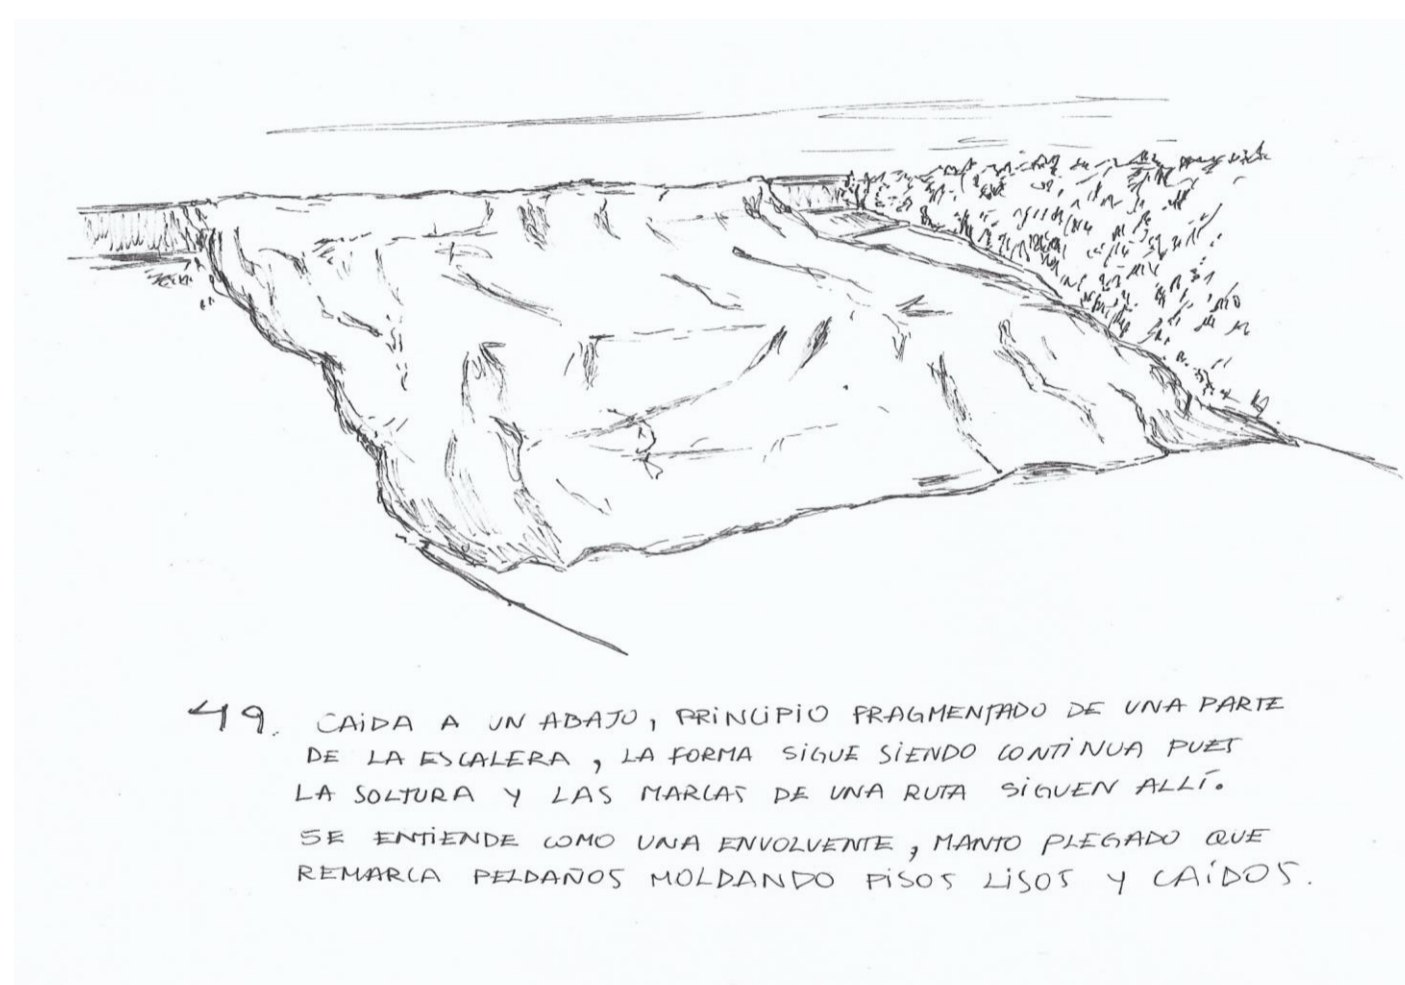 49. CAIDA A UN ABAJO, PRINCIPIO FRAGMENTADO DE UNA PARTE
DE LA ESCALERA, LA FORMA SIGUE SIENDO CONTINUA PUES
LA SOLTURA Y LAS MARCAS DE UNA RUTA SIGUEN ALLÍ.
SE ENTIENDE COMO UNA ENVOLVENTE, MANTO PLEGADO QUE
REMARCA PELDAÑOS MOLDANDO PISOS LISOS Y CAÍDOS.